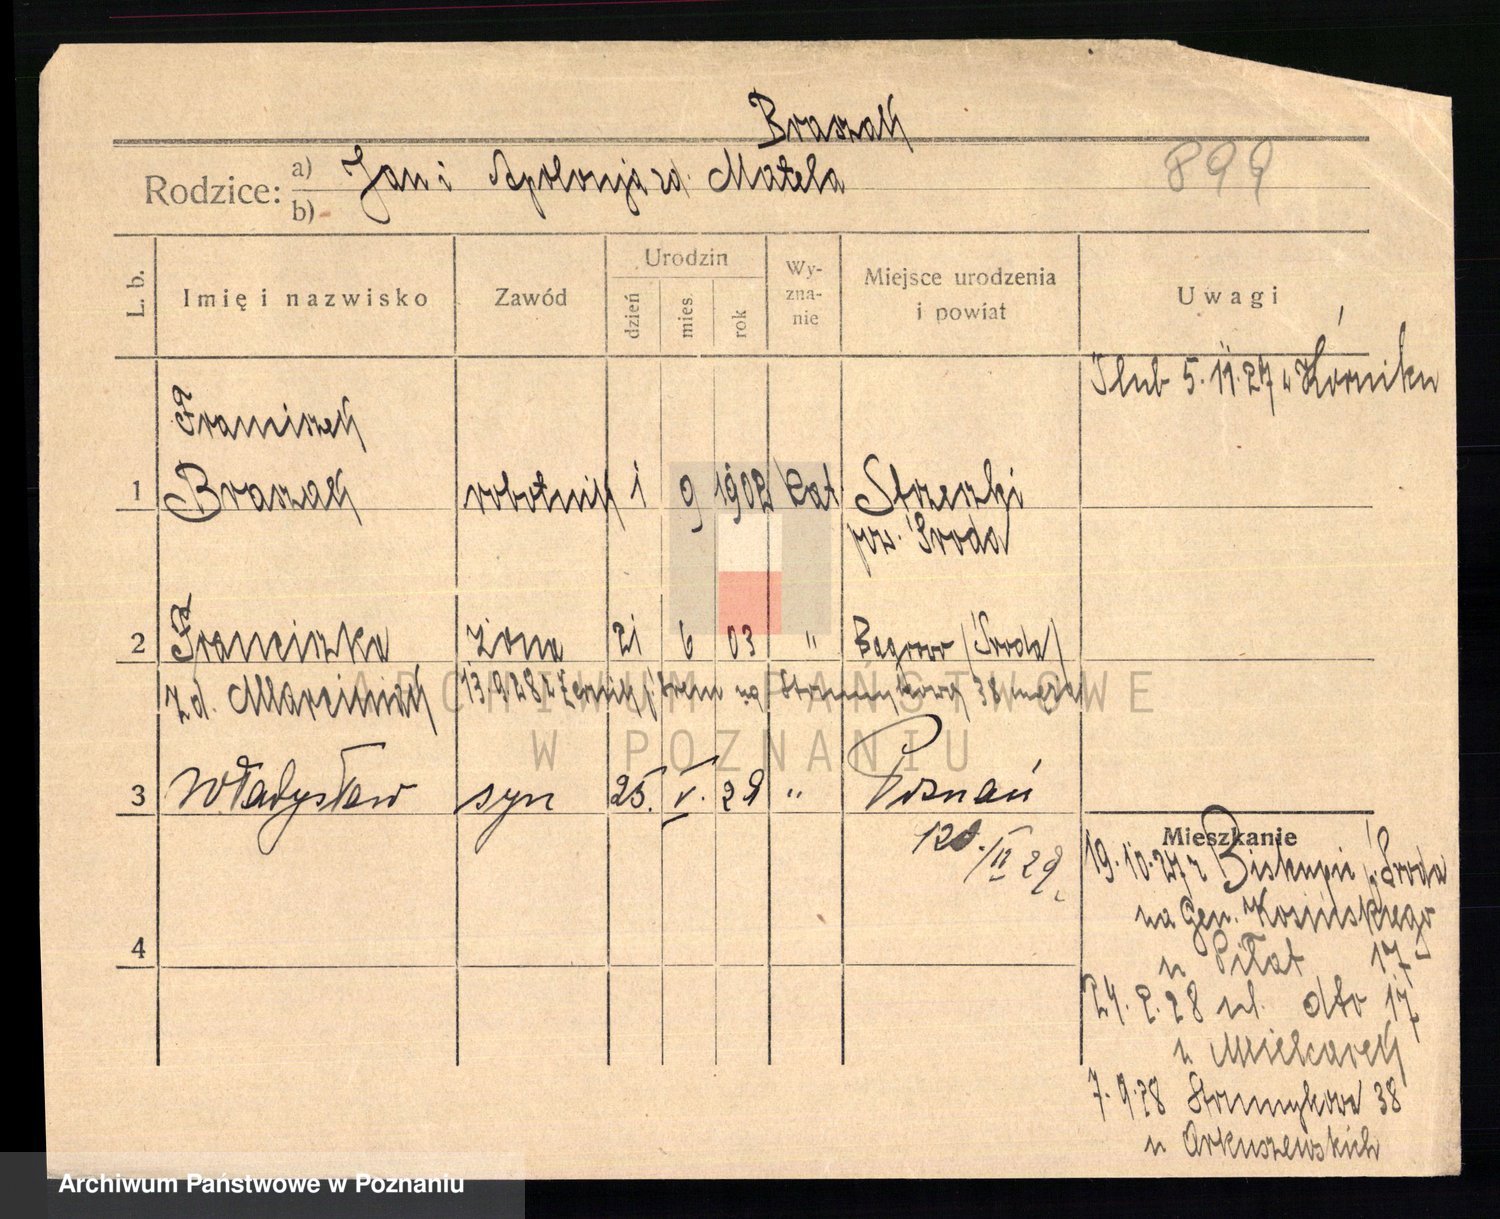 Braszak
Rodzice: a) Jan i Apolonja zd. Matela
b)
899
L. b. Imię i nazwisko Zawód Urodzin dzień mies. rok Wy-zna-nie Miejsce urodzenia i powiat Uwagi
Ślub 5.11.27 w Kórniku
Franciszek
1 Braszak robotnik 1 9 1902 kat Strzeszki
pow. Środa
2 Franciszka żona 21 6 03 " Bagrow (Środa)
z d. Marciniak 13.9.28 z Śrem na Strumykową 38 męża
3 Władysław syn 25. V. 29 " Poznań
29.
Mieszkanie
19.10.27 z Biskupic p. Środa
na Gen. Kosińskiego
u Piłat 17
4
24.2.28 ul. dto 17
u Mielcarek
7.9.28 Strumykowa 38
u Arkuszewskich
ARCHIWUM PAŃSTWOWE
W POZNANIU
Archiwum Państwowe w Poznaniu